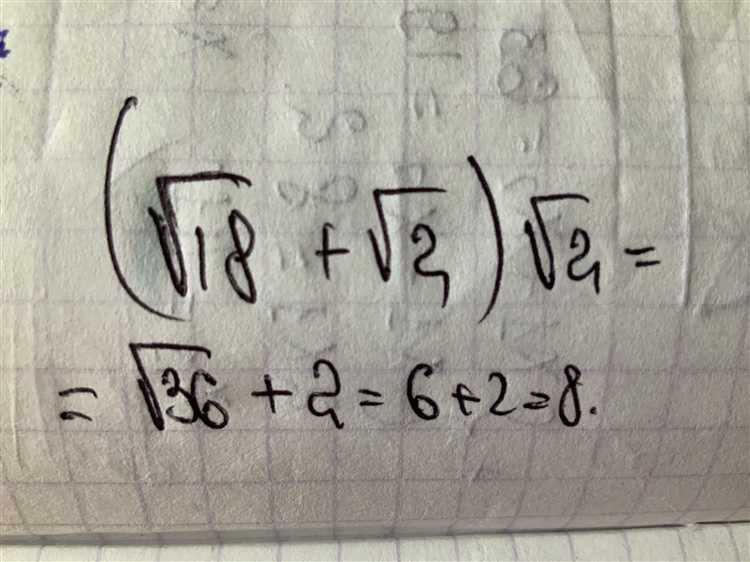 (√18 + √2) √2 =
= √36 + 2 = 6 + 2 = 8.